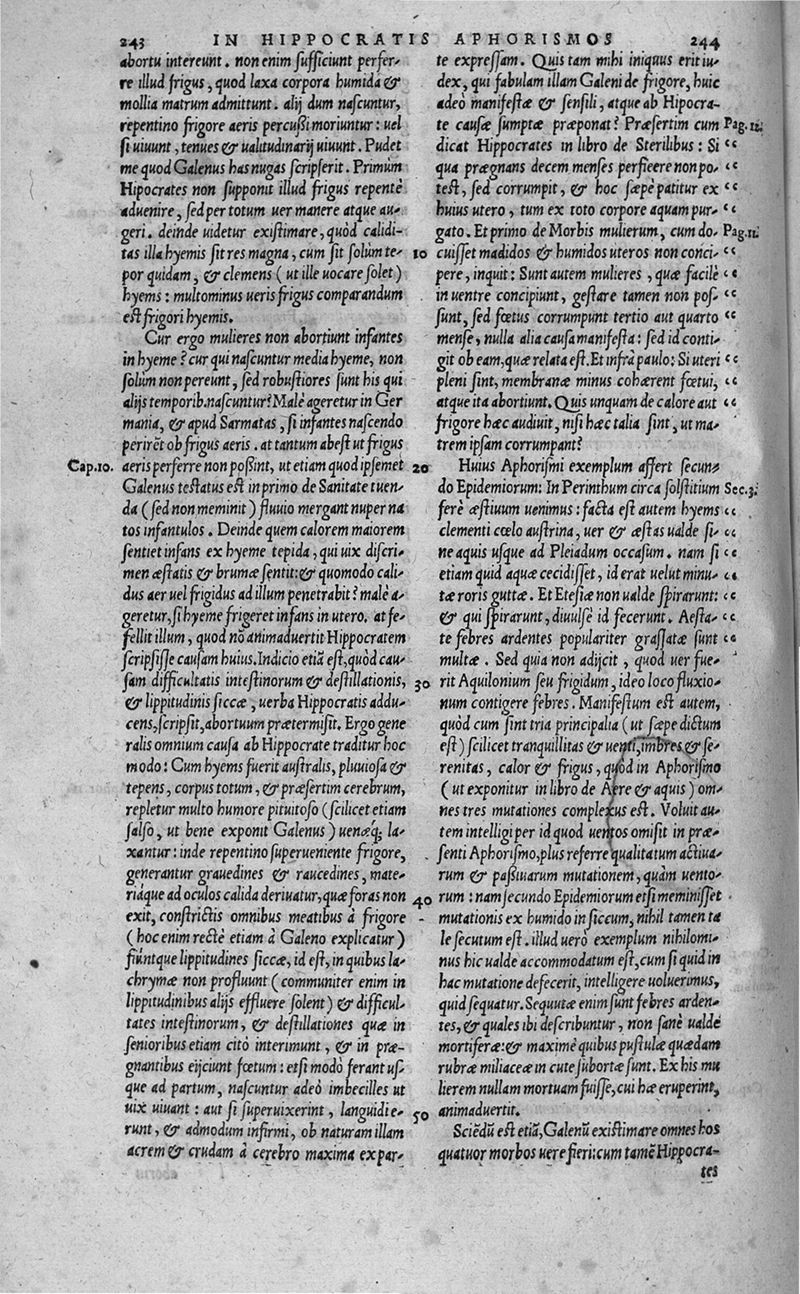 243 IN HIPPOCRATIS APHORISMOS 244
abortu intereunt. non enim sufficiunt perfer-
re illud frigus, quod laxa corpora humida &
mollia matrum admittunt. alij dum nascuntur,
repentino frigore aeris percussi moriuntur: uel
si uiuunt, tenues & ualitudinarij uiuunt. Pudet
me quod Galenus has nugas scripserit. Primùm
Hipocrates non supponit illud frigus repentè
aduenire, sed per totum uer manere atque au-
geri. deinde uidetur existimare, quòd calidi-
tas illa hyemis sit res magna, cum sit solùm te-
por quidam, & clemens (ut ille uocare solet)
hyems: multominus ueris frigus comparandum
est frigori hyemis.
Cur ergo mulieres non abortiunt infantes
in hyeme? cur qui nascuntur media hyeme, non
solùm non pereunt, sed robustiores sunt his qui
alijs temporib. nascuntur? Malè ageretur in Ger
mania, & apud Sarmatas, si infantes nascendo
perirẽt ob frigus aeris. at tantum abest ut frigus
Cap. 10. aeris perferre non possint, ut etiam quod ipsemet
Galenus testatus est in primo de Sanitate tuen-
da (sed non meminit) fluuio mergant nuper na
tos infantulos. Deinde quem calorem maiorem
sentiet infans ex hyeme tepida, qui uix discri-
men æstatis & brumæ sentit: & quomodo cali-
dus aer uel frigidus ad illum penetrabit? malè a-
geretur, si hyeme frigeret infans in utero. at fe-
fellit illum, quod nõ animaduertit Hippocratem
scripsisse causam huius. Indicio etiã est, quòd cau-
sam difficultatis intestinorum & destillationis,
& lippitudinis siccæ, uerba Hippocratis addu-
cens, scripsit, abortuum prætermisit. Ergo gene
ralis omnium causa ab Hippocrate traditur hoc
modo: Cum hyems fuerit australis, pluuiosa &
tepens, corpus totum, & præsertim cerebrum,
repletur multo humore pituitoso (scilicet etiam
salso, ut bene exponit Galenus) uenæq; la-
xantur: inde repentino superueniente frigore,
generantur grauedines & raucedines, mate-
riáque ad oculos calida deriuatur, quæ foras non
exit, constrictis omnibus meatibus à frigore
(hoc enim rectè etiam à Galeno explicatur)
fiúntque lippitudines siccæ, id est, in quibus la-
chrymæ non profluunt (communiter enim in
lippitudinibus alijs effluere solent) & difficul-
tates intestinorum, & destillationes quæ in
senioribus etiam citò interimunt, & in præ-
gnantibus eijciunt fœtum: etsi modò ferant us-
que ad partum, nascuntur adeò imbecilles ut
uix uiuant: aut si superuixerint, languidi e-
runt, & admodum infirmi, ob naturam illam
acrem & crudam à cerebro maxima ex par-
te expressam. Quis tam mihi iniquus erit iu-
dex, qui fabulam illam Galeni de frigore, huic
adeo manifestæ & sensili, atque ab Hipocra-
te causæ sumptæ præponat? Præsertim cum Pag. 12.
dicat Hippocrates in libro de Sterilibus: Si “
qua prægnans decem menses perficere non po- “
test, sed corrumpit, & hoc sæpè patitur ex “
huius utero, tum ex toto corpore aquam pur- “
gato. Et primo de Morbis mulierum, cum do- Pag. 12.
10 cuisset madidos & humidos uteros non conci- “
pere, inquit: Sunt autem mulieres, quæ facilè “
in uentre concipiunt, gestare tamen non pos- “
sunt, sed fœtus corrumpunt tertio aut quarto “
mense, nulla alia causa manifesta: sed id conti- “
git ob eam, quæ relata est. Et infrà paulo: Si uteri “
pleni sint, membranæ minus cohærent fœtui, “
atque ita abortiunt. Quis unquam de calore aut “
frigore hæc audiuit, nisi hæc talia sint, ut ma-
trem ipsam corrumpant?
20 Huius Aphorismi exemplum affert secun-
do Epidemiorum: In Perinthum circa solstitium Sec. 3.
ferè æstiuum uenimus: facta est autem hyems “
clementi cœlo austrina, uer & æstas ualde si- “
ne aquis usque ad Pleiadum occasum. nam si “
etiam quid aquæ cecidisset, id erat uelut minu- “
tæ roris guttæ. Et Etesiæ non ualde spirarunt: “
& qui spirarunt, diuulsè id fecerunt. Aesta- “
te febres ardentes populariter grassatæ sunt “
multæ. Sed quia non adijcit, quod uer fue-
30 rit Aquilonium seu frigidum, ideo loco fluxio-
num contigere febres. Manifestum est autem,
quòd cum sint tria principalia (ut sæpe dictum
est) scilicet tranquillitas & uenti, imbres & se-
renitas, calor & frigus, quòd in Aphorismo
(ut exponitur in libro de Aere & aquis) om-
nes tres mutationes complexus est. Voluit au-
tem intelligi per id quod uentos omisit in præ-
senti Aphorismo, plus referre qualitatum actiua-
rum & passiuarum mutationem, quàm uento-
40 rum: nam secundo Epidemiorum etsi meminisset
mutationis ex humido in siccum, nihil tamen ta
le secutum est. illud uerò exemplum nihilomi-
nus hic ualde accommodatum est, cum si quid in
hac mutatione defecerit, intelligere uoluerimus,
quid sequatur. Sequutæ enim sunt febres arden-
tes, & quales ibi describuntur, non sanè ualde
mortiferæ: & maximè quibus pustulæ quædam
rubræ miliaceæ in cute subortæ sunt. Ex his mu
lierem nullam mortuam fuisse, cui hæ eruperint,
50 animaduertit.
Sciẽdũ est etiã, Galenũ existimare omnes hos
quatuor morbos uere fieri: cum tamẽ Hippocra-
tes